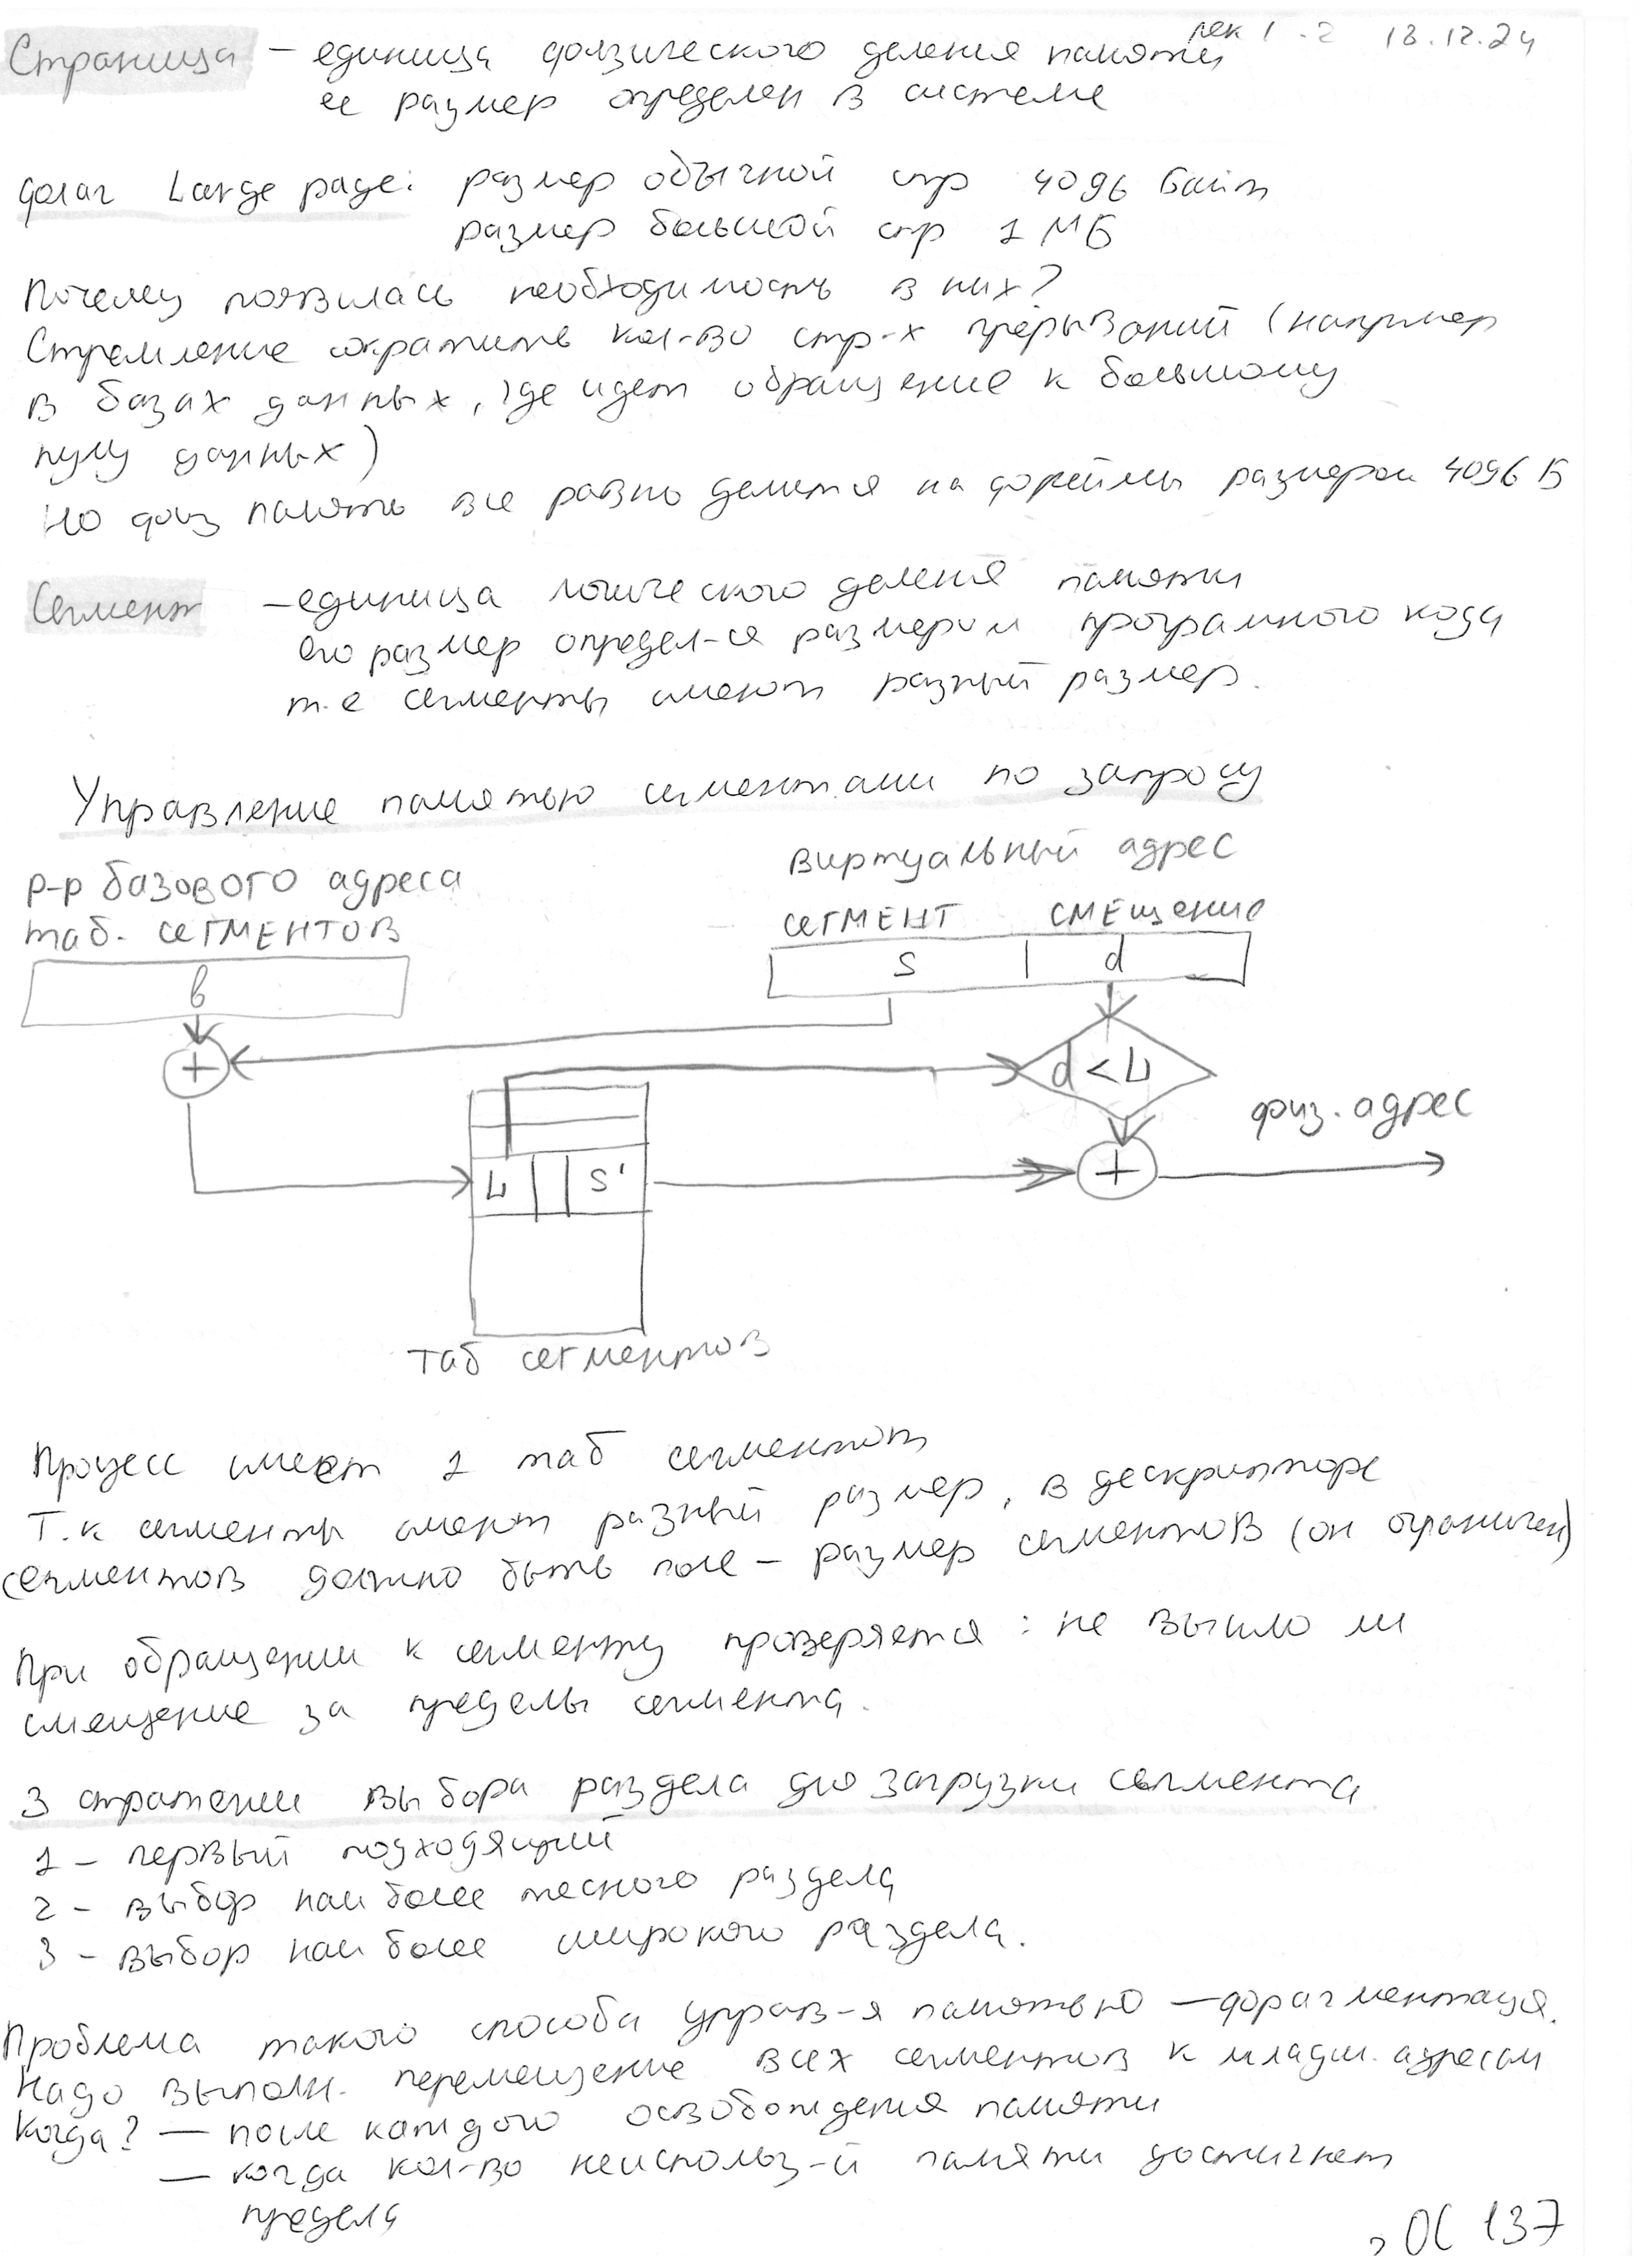 лек 1-2 18.12.24
Страница — единица физического деления памяти
ее размер определен в системе
флаг Large page: размер обычной стр 4096 байт
размер большой стр 1 МБ
Почему появилась необходимость в них?
Стремление сократить кол-во стр-х прерываний (например
в базах данных, где идет обращение к большому
пулу данных)
Но физ память все равно делится на фреймы размером 4096 Б
Сегмент — единица логического деления памяти
его размер определ-ся размером програмного кода
т.е сегменты имеют разный размер.
Управление памятью сегментами по запросу
виртуальный адрес
р-р базового адреса
таб. сегментов
сегмент смещение
b
s d
+
d < L
физ. адрес
L s'
+
таб сегментов
Процесс имеет 1 таб сегментов
Т.к сегменты имеют разный размер, в дескрипторе
сегментов должно быть поле — размер сегментов (он ограничен)
При обращении к сегменту проверяется: не вышло ли
смещение за пределы сегмента.
3 стратегии выбора раздела для загрузки сегмента
1 — первый подходящий
2 — выбор наиболее тесного раздела
3 — выбор наиболее широкого раздела.
Проблема такого способа управ-я памятью — фрагментация.
Надо выполн. перемещение всех сегментов к младш. адресам
Когда? — после каждого освобождения памяти
— когда кол-во неиспольз-й памяти достигнет
предела
ОС 137